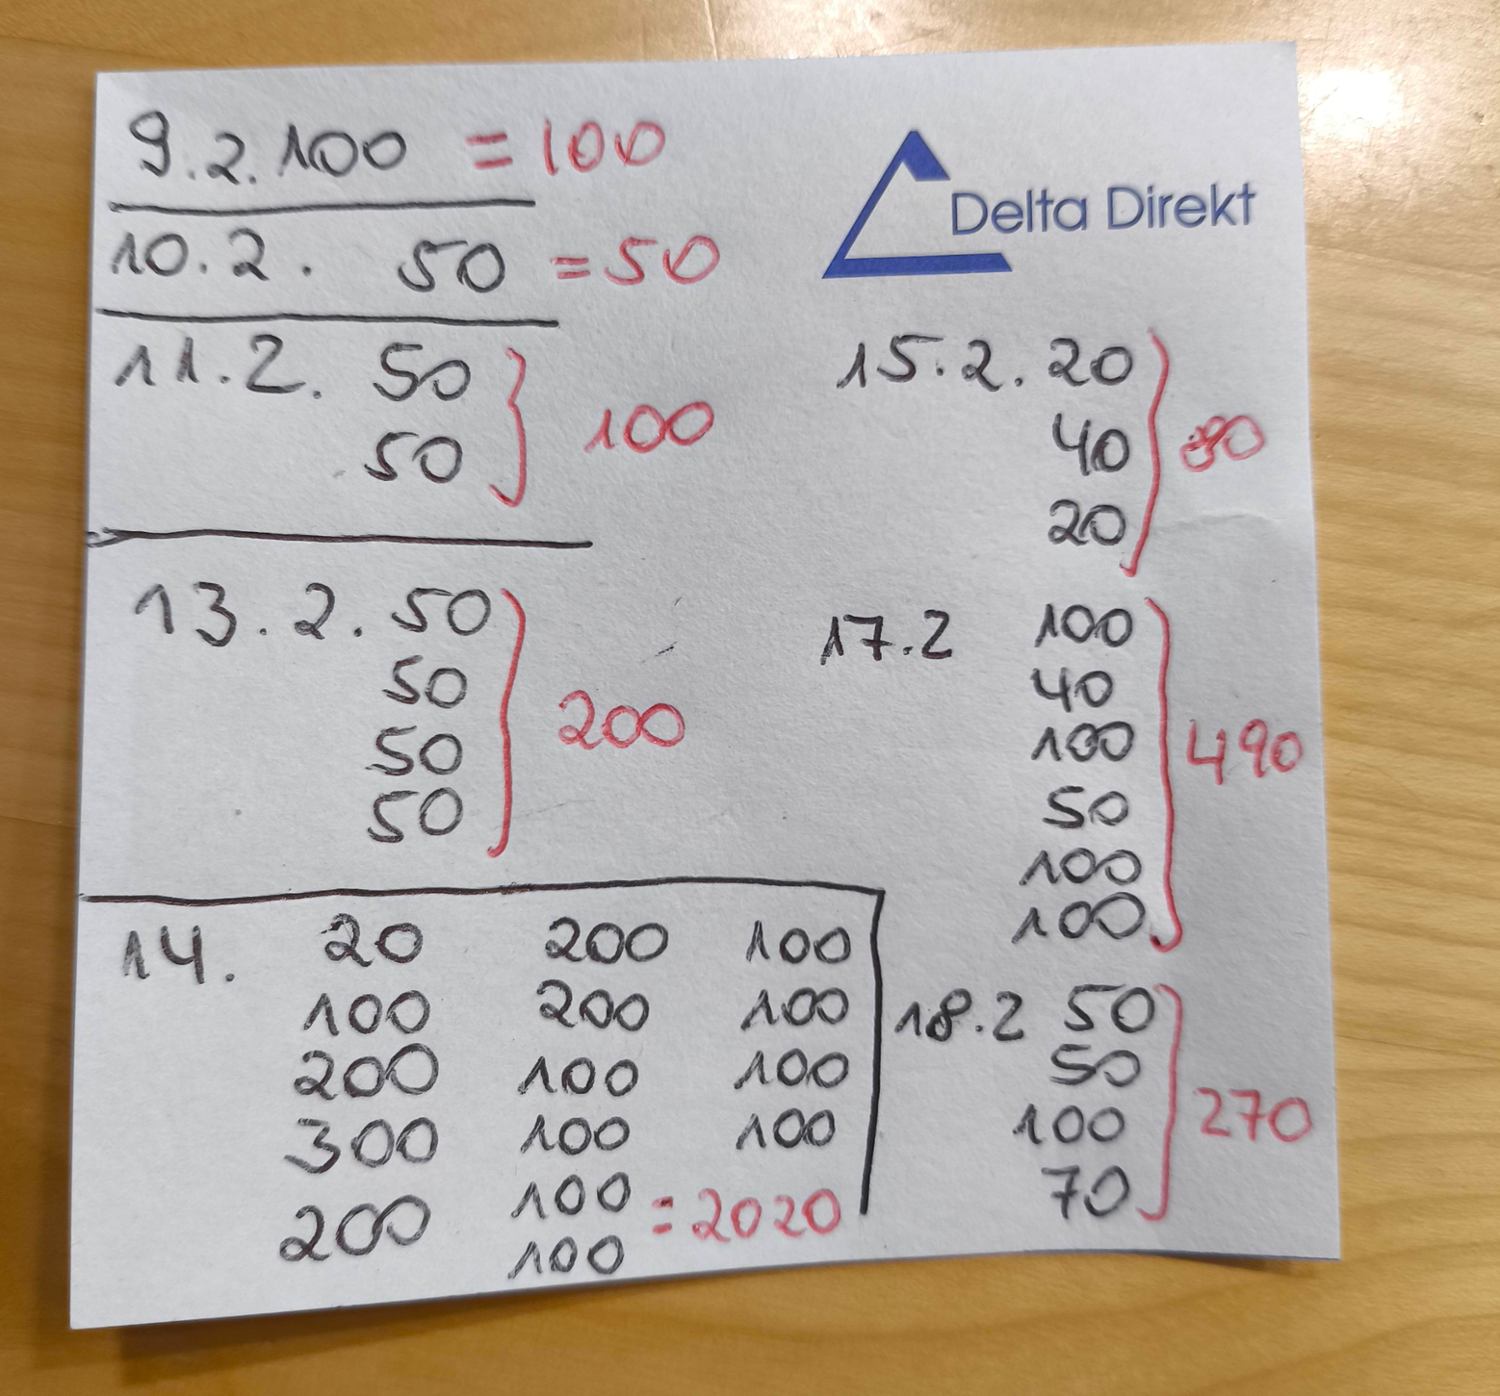 9.2. 100 = 100
10.2. 50 = 50
11.2. 50
50
} 100
13.2. 50
50
50
50
} 200
14. 20 200 100
100 200 100
200 100 100
300 100 100
200 100 = 2020
100
Delta Direkt
15.2. 20
40
20
80
17.2 100
40
100
50
100
100
490
18.2 50
50
100
70
270